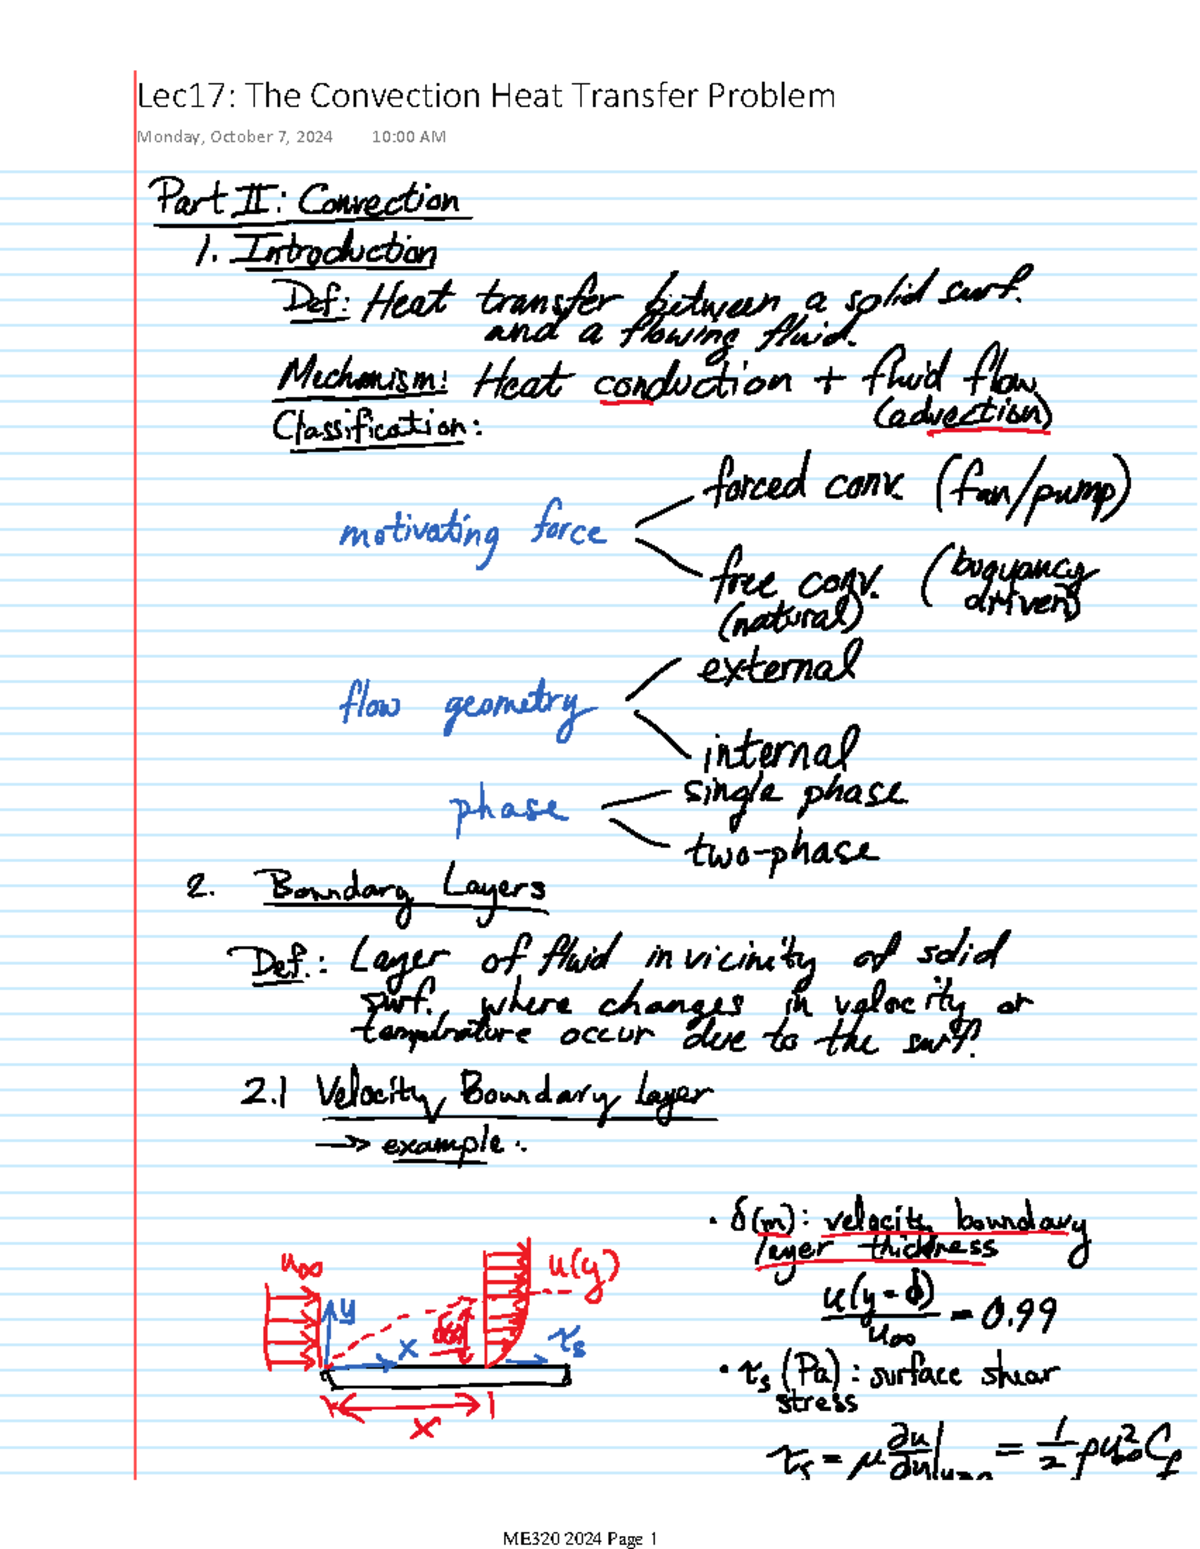 Lec17: The Convection Heat Transfer Problem
Monday, October 7, 2024 10:00 AM
Part II: Convection
1. Introduction
Def: Heat transfer between a solid surf.
and a flowing fluid.
Mechanism: Heat conduction + fluid flow
(advection)
Classification:
motivating force
forced conv. (fan/pump)
free conv. (buoyancy
(natural) driven)
flow geometry
external
internal
phase
single phase
two-phase
2. Boundary Layers
Def.: Layer of fluid in vicinity of solid
surf. where changes in velocity or
temperature occur due to the surf.
2.1 Velocity Boundary Layer
→ example:
• δ(m): velocity boundary
layer thickness
u(y=δ)/u∞ = 0.99
• τs (Pa): surface shear
stress
τs = μ ∂u/∂y|y=0 = 1/2 ρu∞² Cf
u∞
y
x
u(y)
τs
x
ME320 2024 Page 1